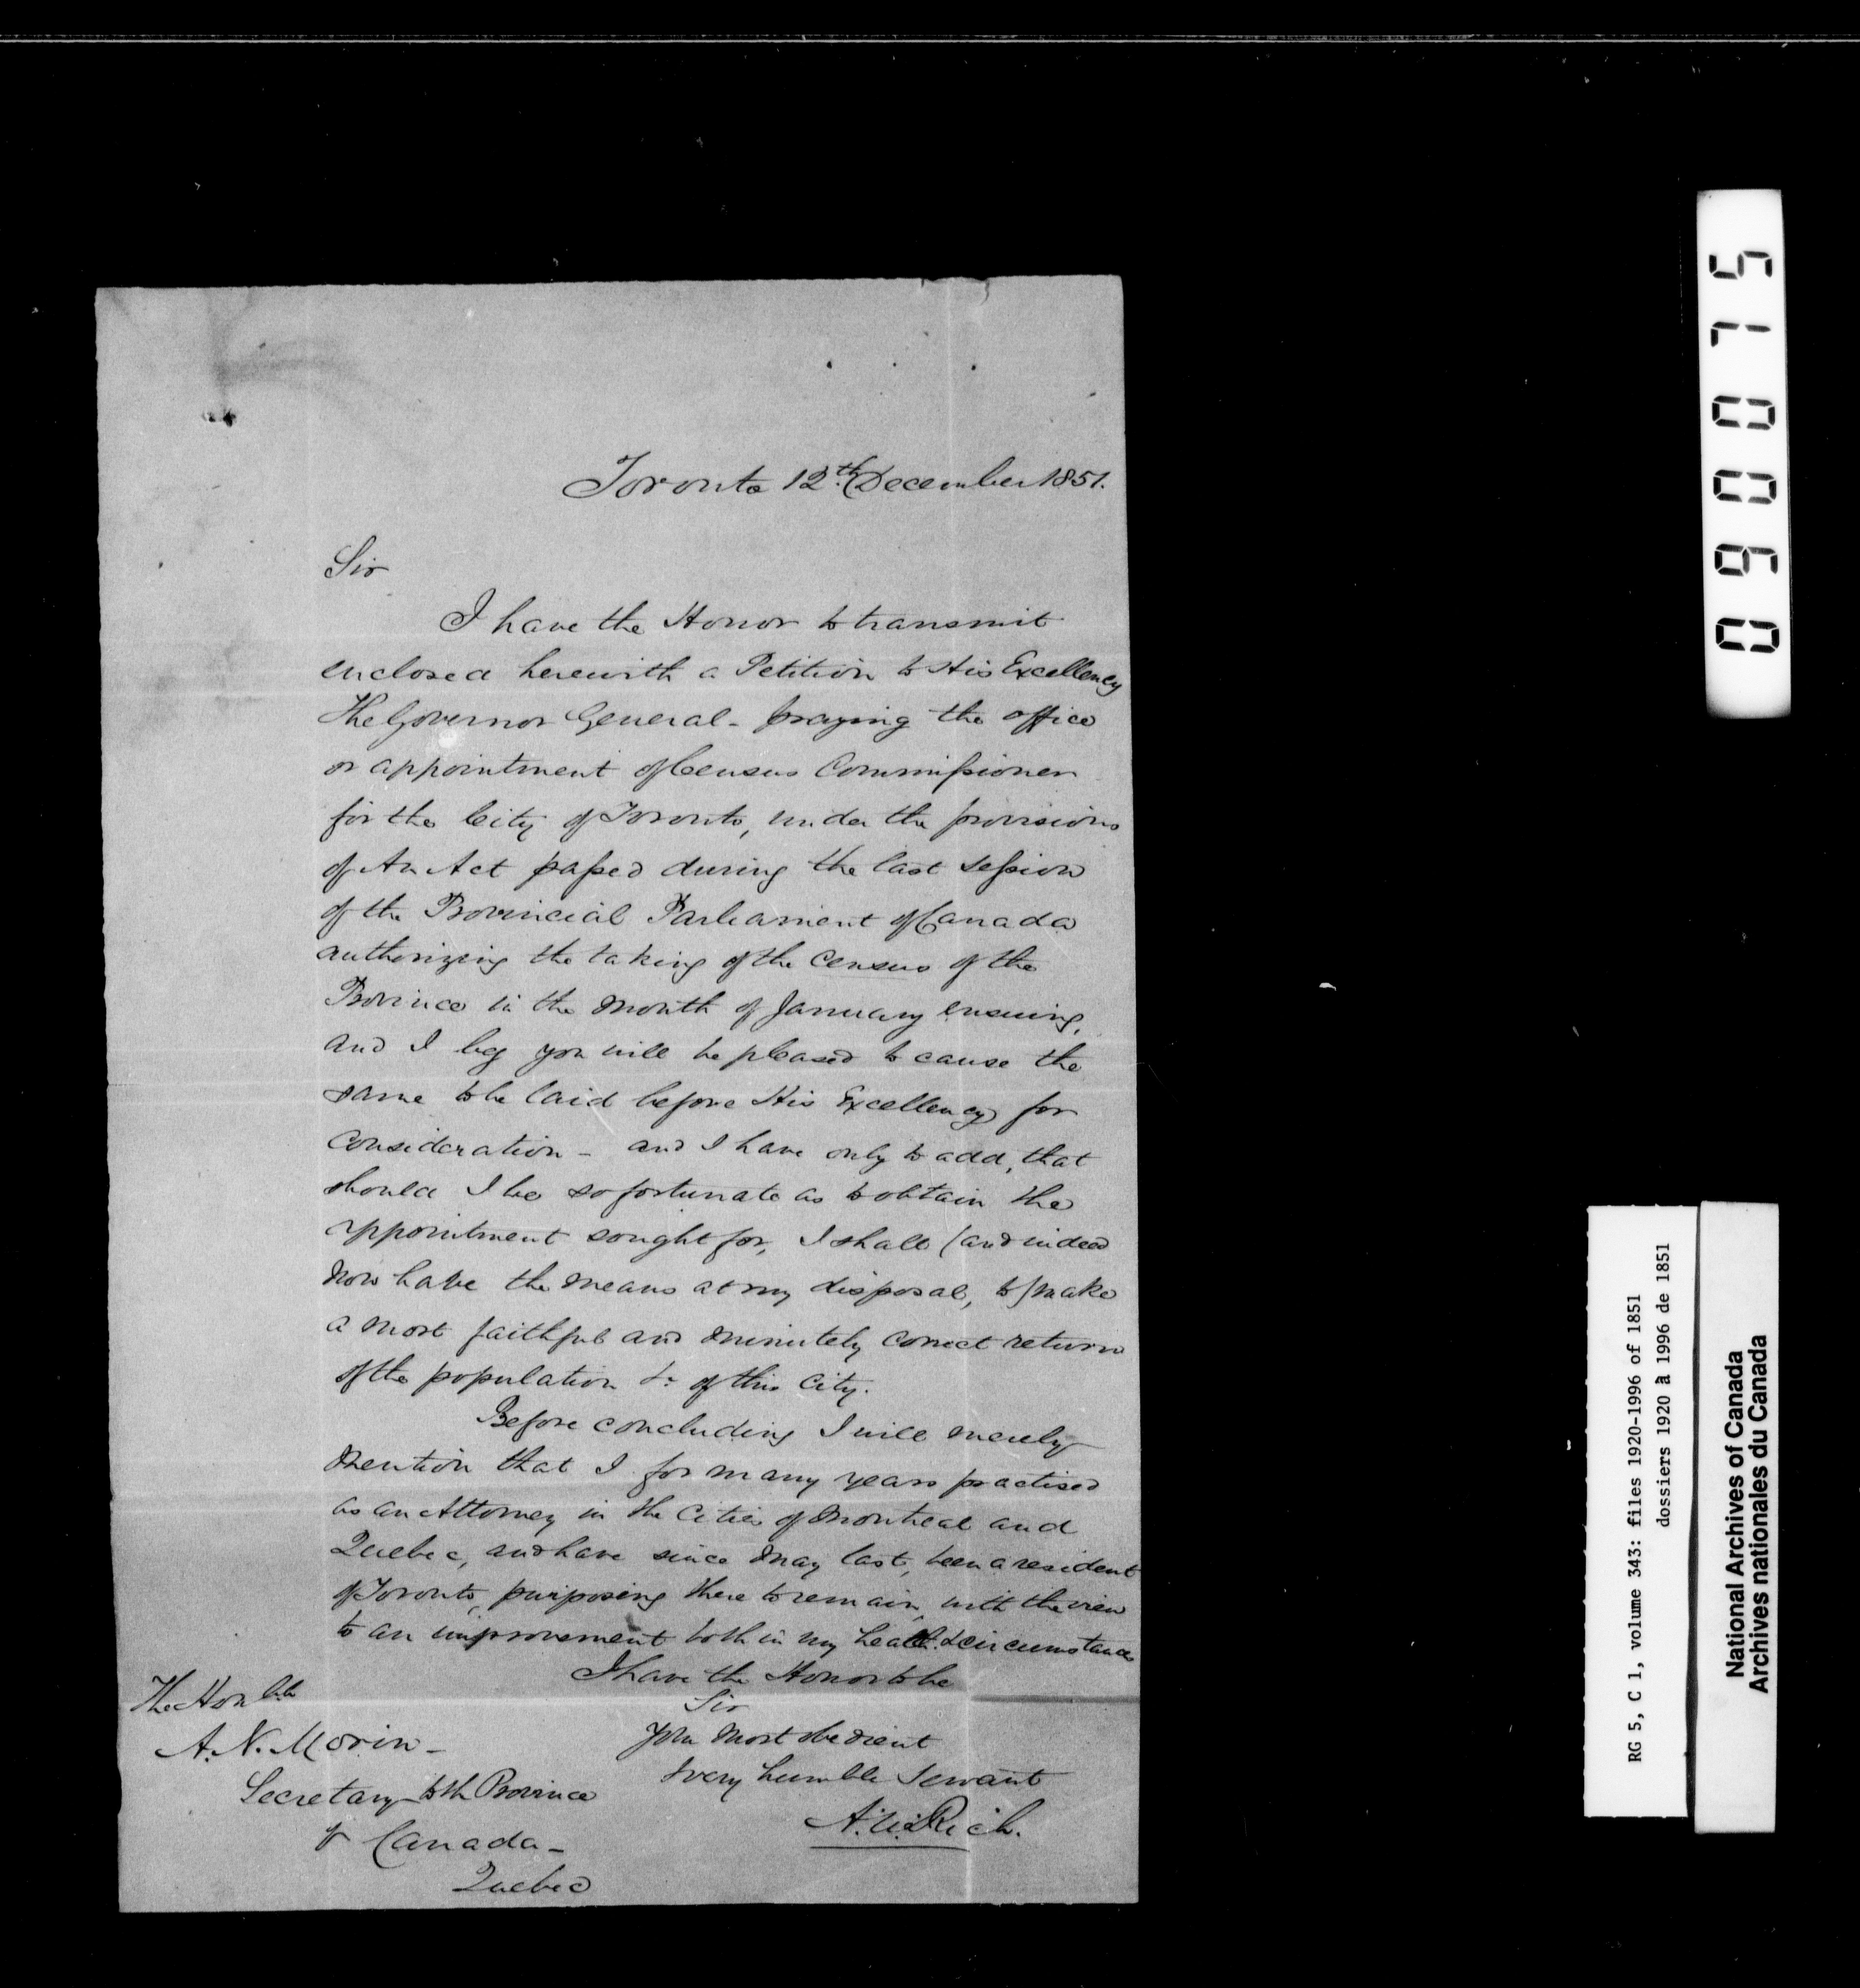 Toronto 12th. December 1851.
Sir
I have the Honor to transmit
enclosed herewith a Petition to His Excellency
The Governor General - praying the office
or appointment of Census Commissioner
for the City of Toronto, under the provisions
of An Act passed during the last Session
of the Provincial Parliament of Canada
authorizing the taking of the Census of the
Province in the month of January ensuing,
and I beg you will be pleased to cause the
same to be laid before His Excellency for
Consideration - and I have only to add, that
should I be so fortunate as to obtain the
appointment sought for, I shall (and indeed
now have the means at my disposal, to) make
a most faithful and minutely correct return
of the population &c of this City.
Before concluding I will merely
mention that I for many years practised
as an Attorney in the Cities of Montreal and
Quebec, and have since May last, been a resident
of Toronto, purposing there to remain, with the view
to an improvement both in my health & circumstances
I have the Honor to be
Sir
Your most obedient
& very humble Servant
Rich.
The Honble
A. N. Morin -
Secretary to the Province
of Canada -
Quebec
090075
RG 5, C 1, volume 343: files 1920-1996 of 1851
dossiers 1920 à 1996 de 1851
National Archives of Canada
Archives nationales du Canada